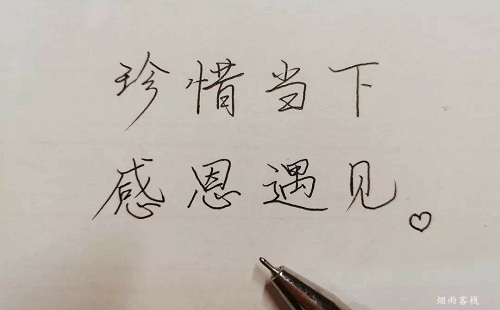 珍惜当下
感恩遇见。♡
细雨客栈